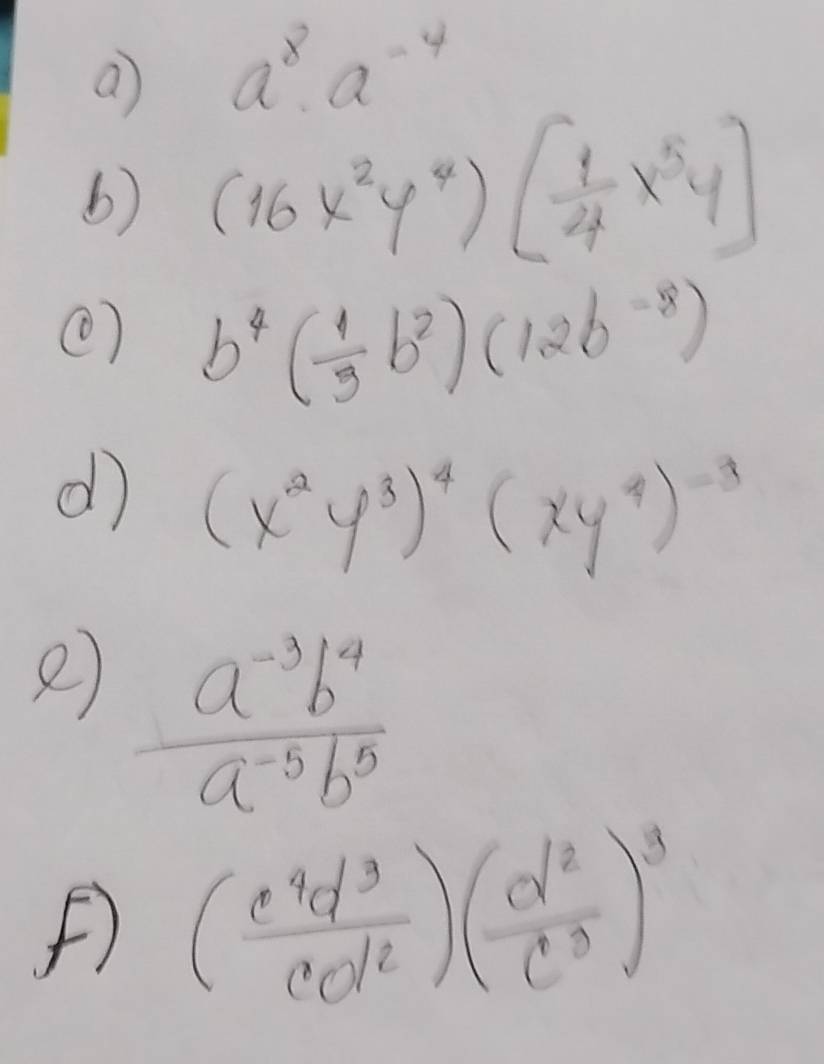 a) a⁸ · a⁻⁴
b) (16 x²y⁴) [1/4 x⁵y]
c) b⁴ (1/3 b²) (12b⁻⁸)
d) (x²y³)⁴ (xy⁴)⁻³
e) a⁻³b⁴ / a⁻⁵b⁵
f) (c⁴d³ / cd²) (d² / c³)³